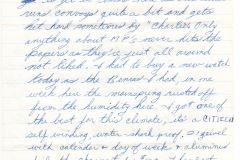 runs convoys quite a bit and gets
hit hard sometimes by "Charlie". Only
anything about M.P.'s never hits the
papers as they're just all around
not liked. I had to buy a new watch
today as the Benrus I had, in one
week has the mainspring rusted off
from the humidity here. I got one of
the best for this climate, its a CITIZEN
self winding water shock proof, 21 jewel
with calendar & day of week & aluminus